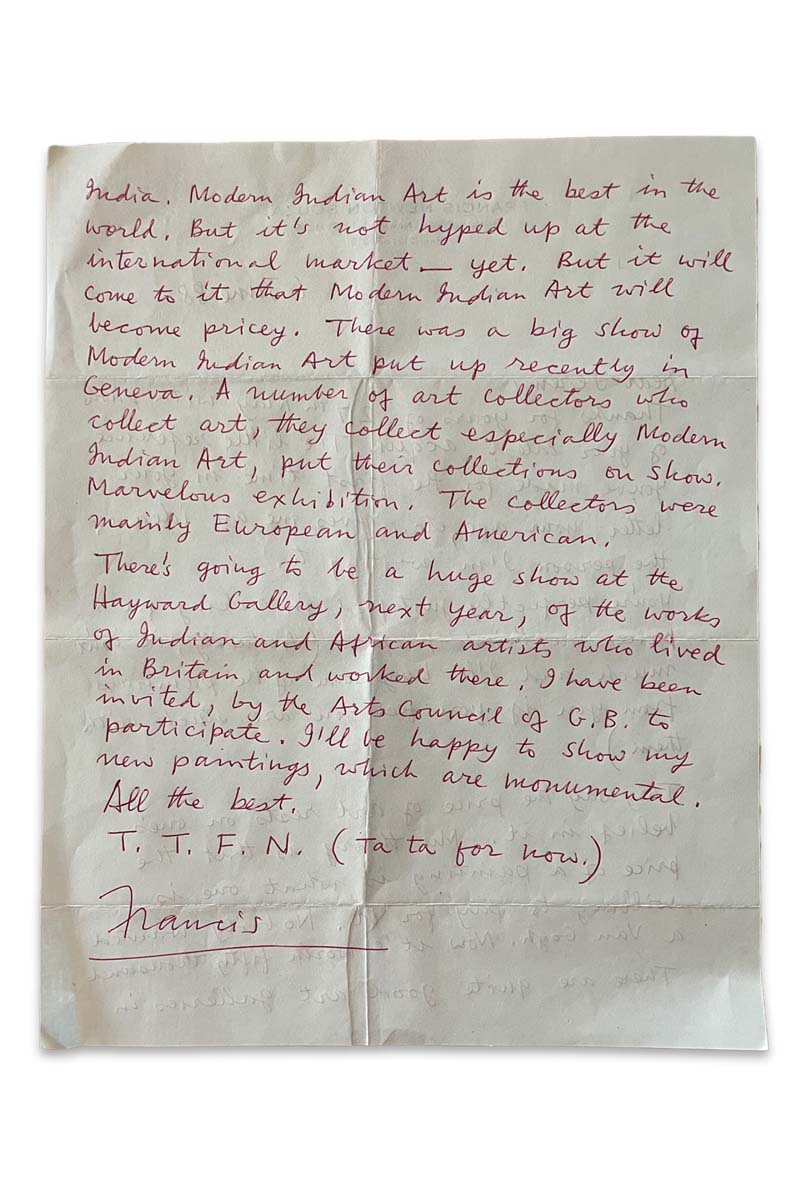 India. Modern Indian Art is the best in the
world. But it's not hyped up at the
international market — yet. But it will
come to it that Modern Indian Art will
become pricey. There was a big show of
Modern Indian Art put up recently in
Geneva. A number of art collectors who
collect art, they collect especially Modern
Indian Art, put their collections on show.
Marvelous exhibition. The collectors were
mainly European and American.
There's going to be a huge show at the
Hayward Gallery, next year, of the works
of Indian and African artists who lived
in Britain and worked there. I have been
invited, by the Arts Council of G.B. to
participate. I'll be happy to show my
new paintings, which are monumental.
All the best.
T. T. F. N. (Ta ta for now.)
Francis